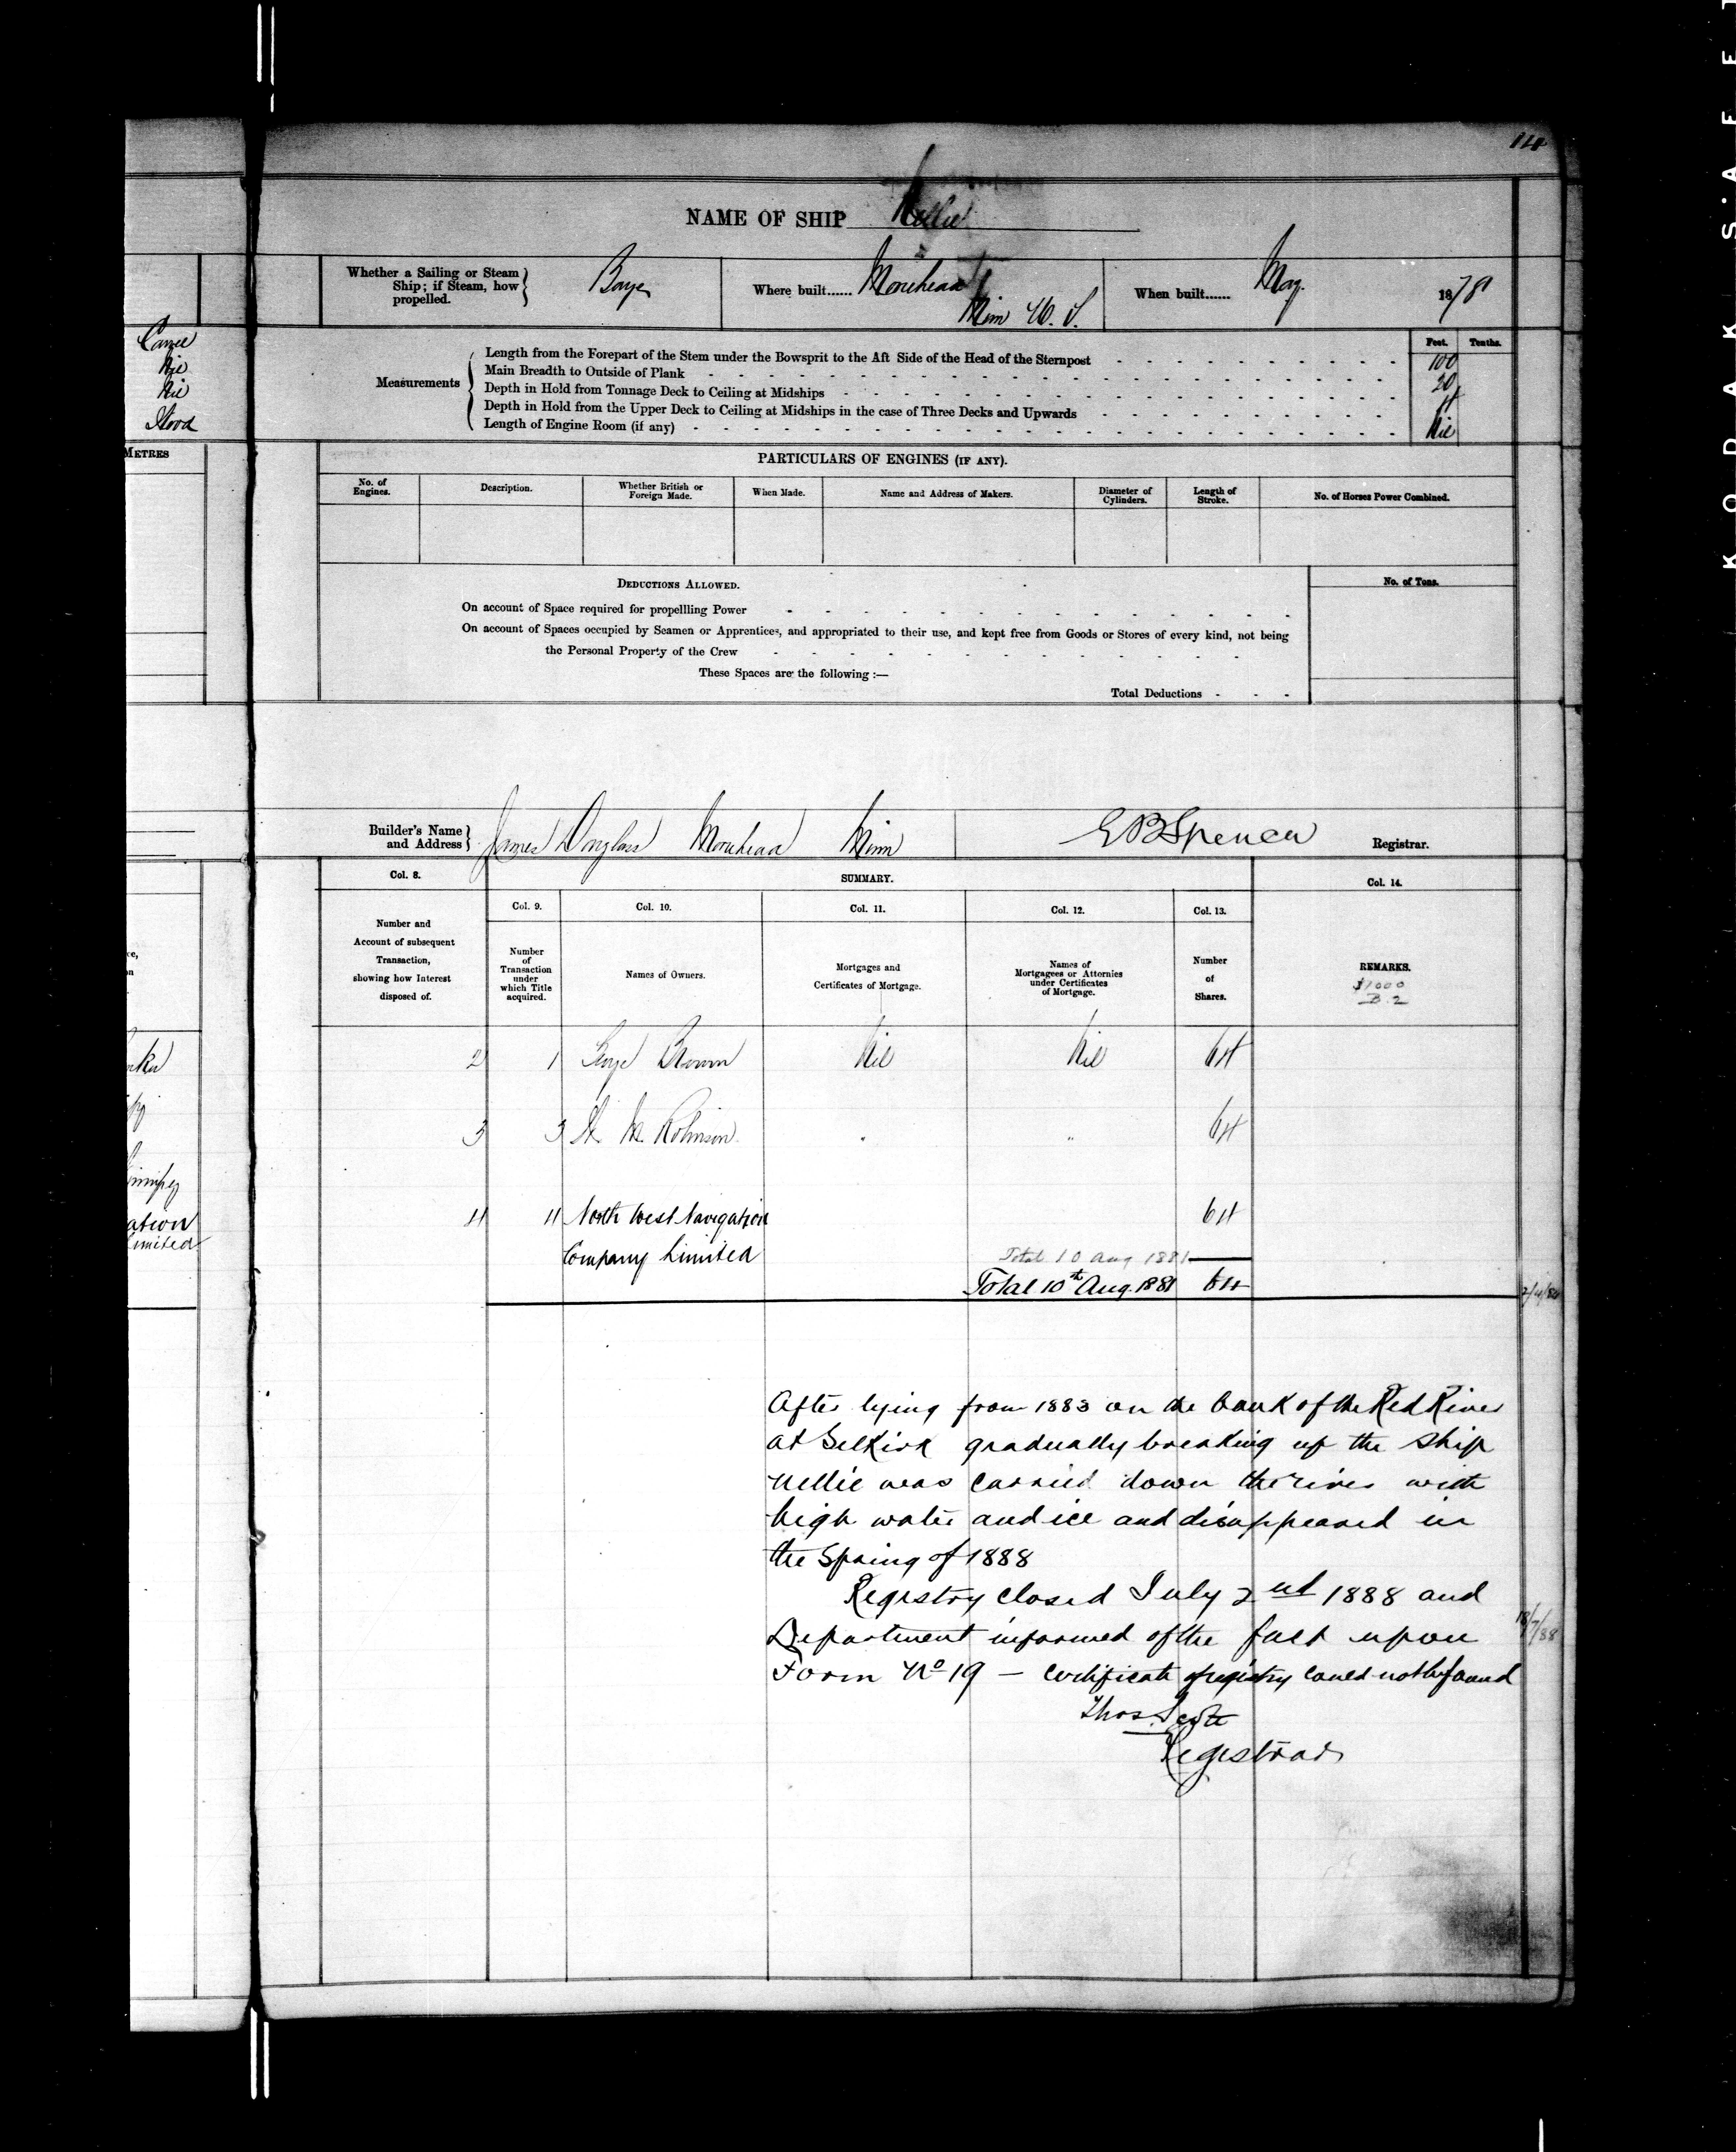 14
NAME OF SHIP Nellie
Whether a Sailing or Steam Ship; if Steam, how propelled. Barge
Where built...... Morehead
Minn U. S.
When built...... May 1878
Feet. Tenths.
Measurements
Length from the Forepart of the Stem under the Bowsprit to the Aft Side of the Head of the Sternpost 100
Main Breadth to Outside of Plank 20
Depth in Hold from Tonnage Deck to Ceiling at Midships 4
Depth in Hold from the Upper Deck to Ceiling at Midships in the case of Three Decks and Upwards
Length of Engine Room (if any) Nil
Nil
Nil
METRES
PARTICULARS OF ENGINES (IF ANY).
No. of Engines. Description. Whether British or Foreign Made. When Made. Name and Address of Makers. Diameter of Cylinders. Length of Stroke. No. of Horses Power Combined.
DEDUCTIONS ALLOWED. No. of Tons.
On account of Space required for propellling Power
On account of Spaces occupied by Seamen or Apprentices, and appropriated to their use, and kept free from Goods or Stores of every kind, not being
the Personal Property of the Crew
These Spaces are the following :—
Total Deductions
Builder's Name and Address James Douglass Morehead Minn
E B Spencer Registrar.
Col. 8. SUMMARY. Col. 14.
Col. 9. Col. 10. Col. 11. Col. 12. Col. 13.
Number and
Account of subsequent
Transaction,
showing how Interest
disposed of.
Number
of
Transaction
under
which Title
acquired.
Names of Owners.
Mortgages and
Certificates of Mortgage.
Names of
Mortgagees or Attornies
under Certificates
of Mortgage.
Number
of
Shares.
REMARKS.
$1000
B. 2
2 1 George Brown Nil Nil 64
3 3 H. M. Robinson " " 64
4 4 North West Navigation 64
Company Limited Total 10 Aug 1881
Total 10th Aug. 1881 64
ation
Limited
After lying from 1883 on the bank of the Red River
at Selkirk gradually breaking up the ship
Nellie was carried down the river with
high water and ice and disappeared in
the Spring of 1888
Registry closed July 2nd 1888 and
Department informed of the fact upon 18/7/88
Form No 19 — Certificate of registry could not be found
Thos. Scott
Registrar
KODAK S'AFE